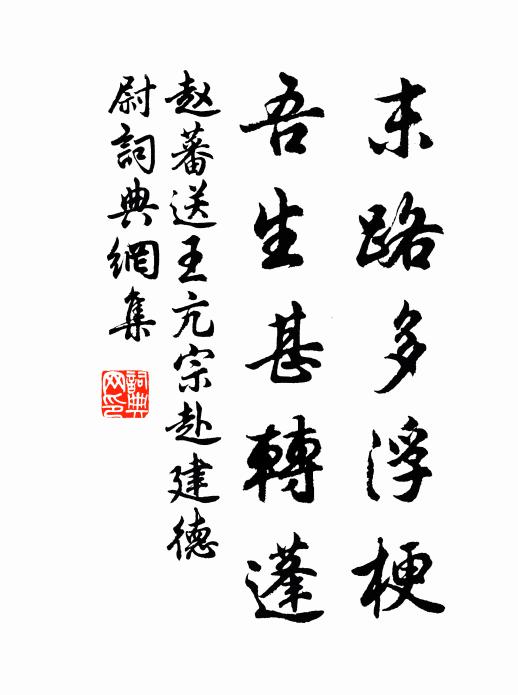 末路多浮梗
吾生甚轉蓬
赵蕃送王亢宗赴建德
尉詞典網集
詞典
网印